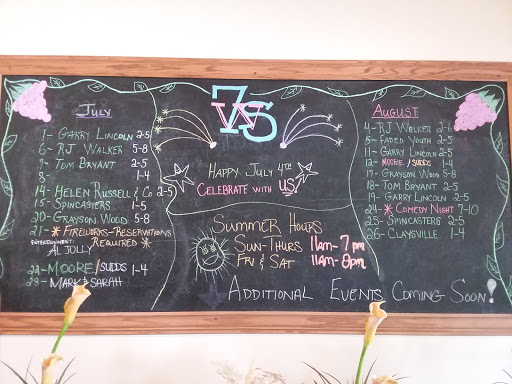 July
1- Garry Lincoln 2-5
6- RJ Walker 5-8
7- Tom Bryant 2-5
8- 1-4
14- Helen Russell & Co 2-5
15- Spincasters 1-5
20- Grayson Wood 5-8
21- * Fireworks-Reservations
Required *
Entertainment:
Al Jolly
22- Moore/Sudds 1-4
28- Mark & Sarah
7 VS
Happy July 4th
Celebrate with US!
Summer Hours
Sun-Thurs 11am-7pm
Fri & Sat 11am-8pm
Additional Events Coming Soon!
August
4- RJ Walker 2-6
5- Faded Youth 1-4
11- Garry Lincoln 2-5
12- Moore/Sudds 1-4
17- Grayson Wood 5-8
18- Tom Bryant 2-5
19- Garry Lincoln 2-5
24- * Comedy Night 7-10
25- Spincasters 2-5
26- Claysville 1-4